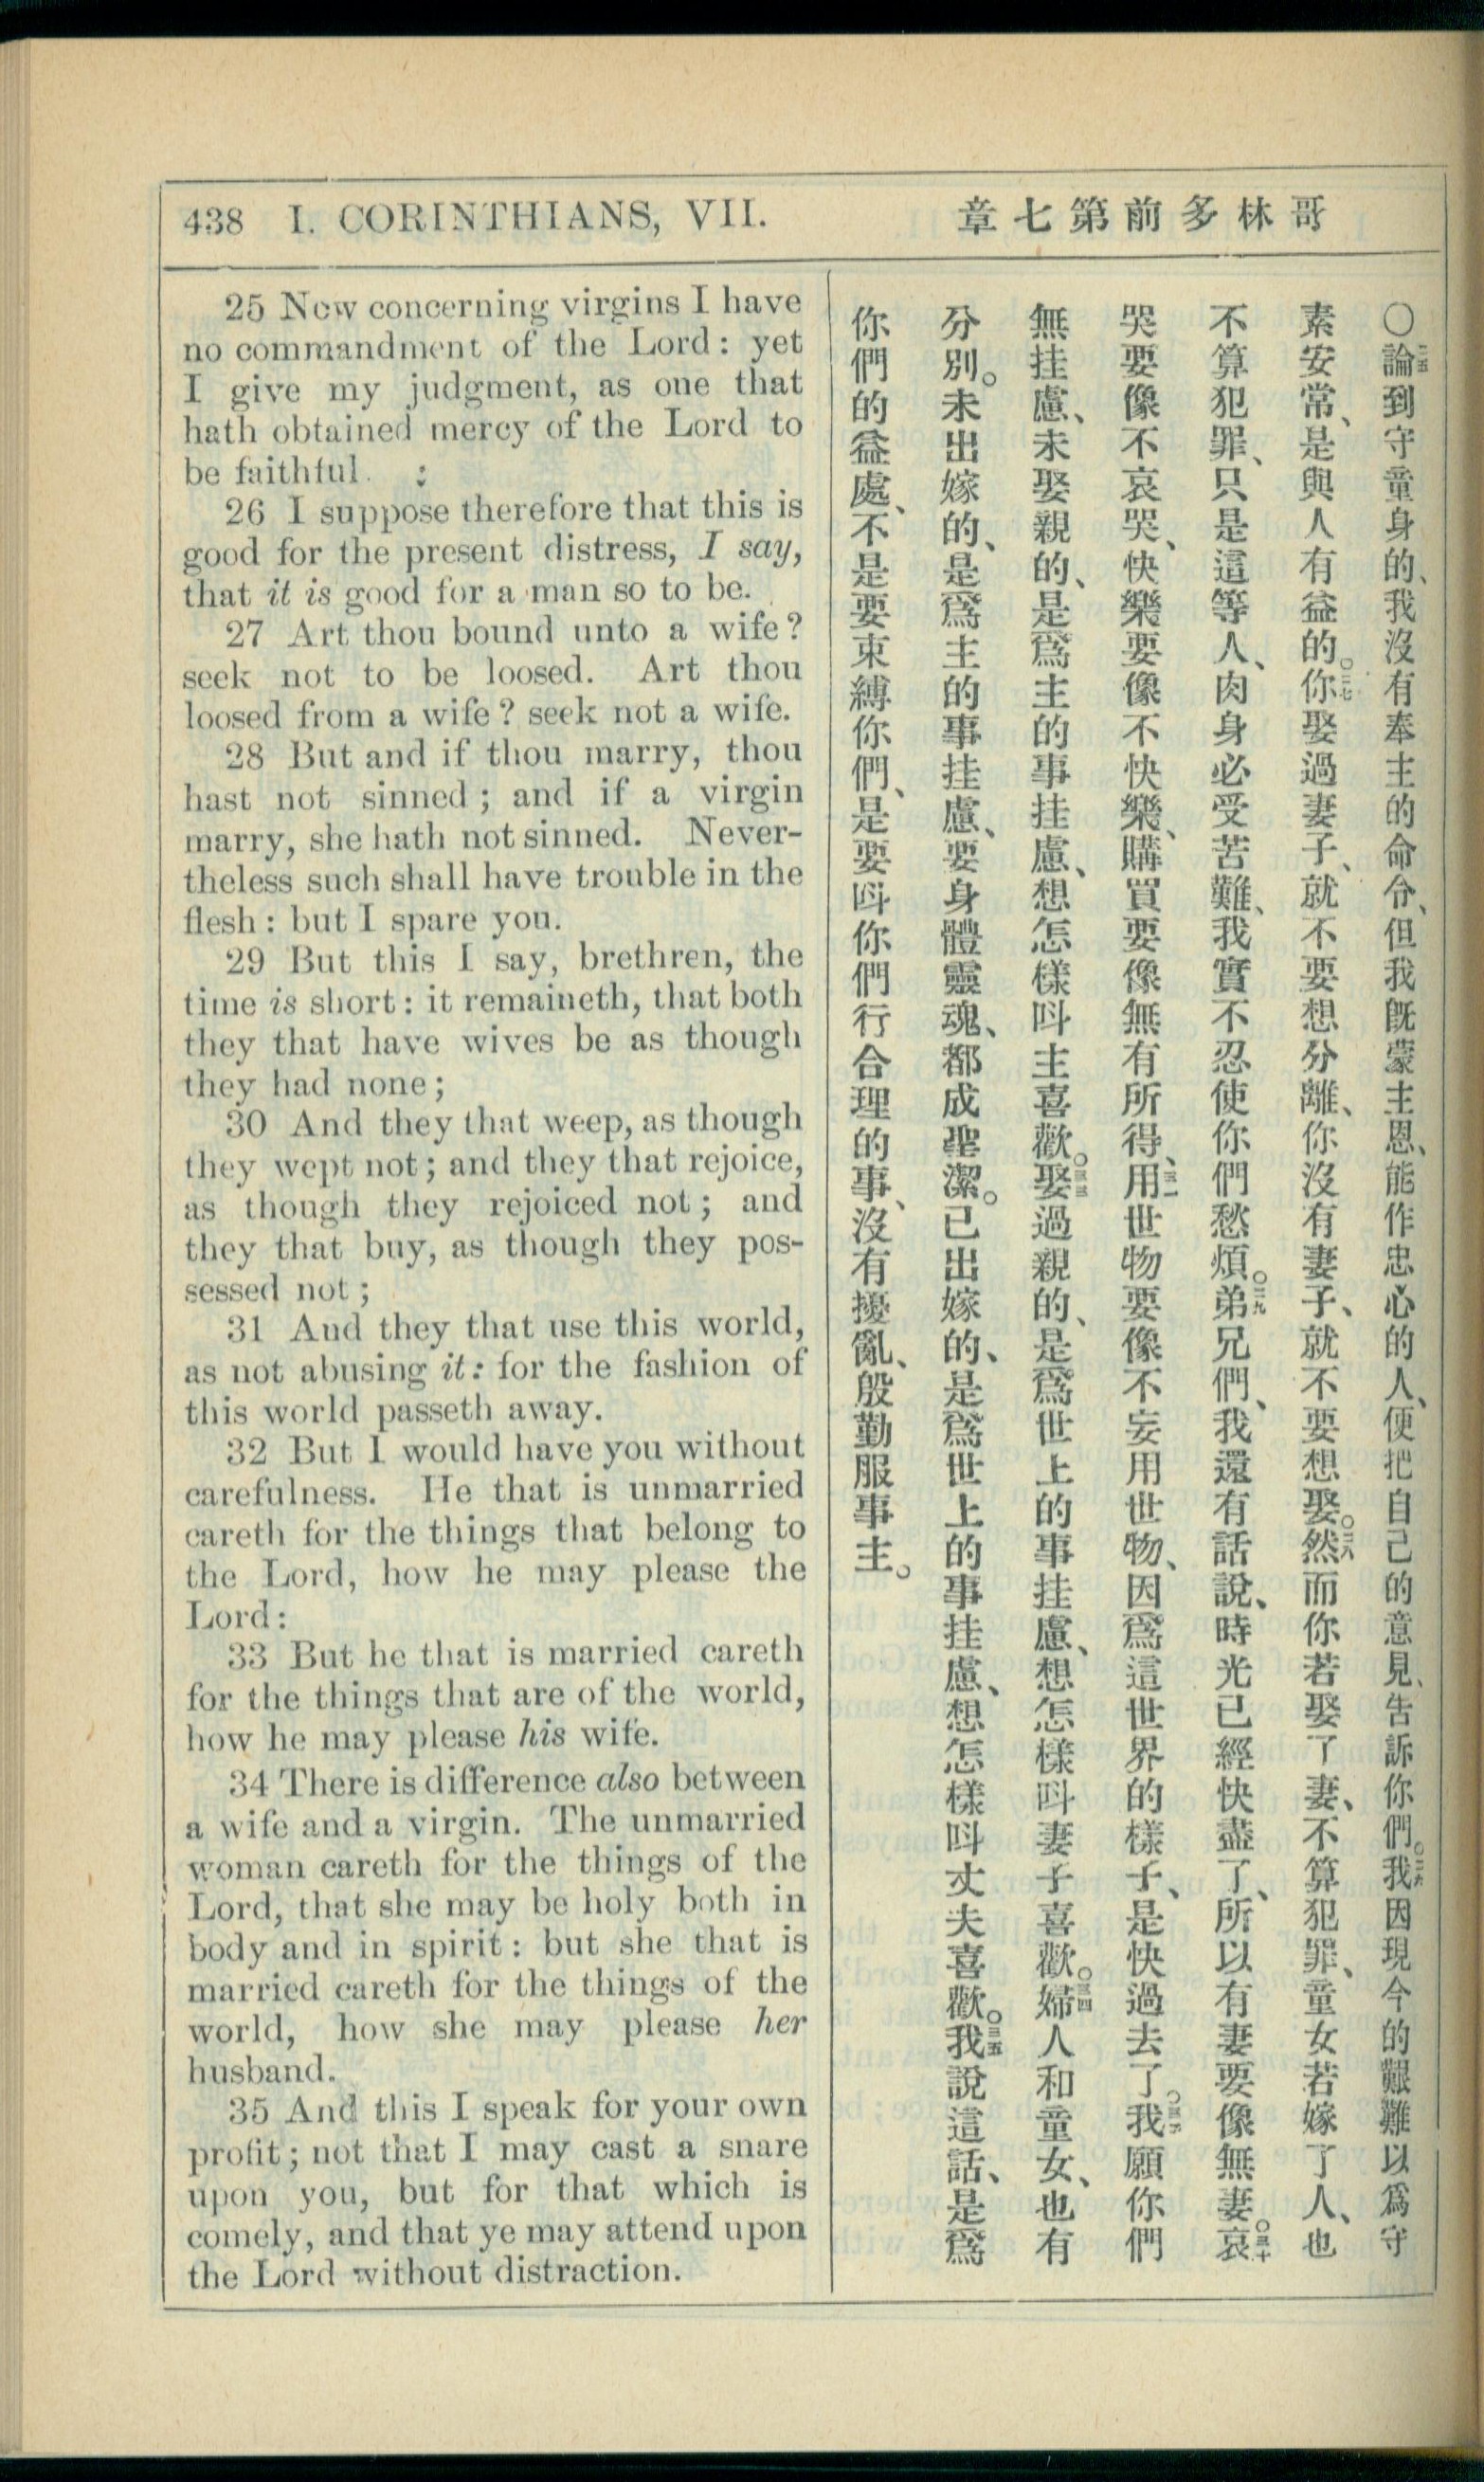 438 I. CORINTHIANS, VII.
哥林多前第七章
25 Now concerning virgins I have
no commandment of the Lord: yet
I give my judgment, as one that
hath obtained mercy of the Lord to
be faithful. :
26 I suppose therefore that this is
good for the present distress, I say,
that it is good for a man so to be.
27 Art thou bound unto a wife?
seek not to be loosed. Art thou
loosed from a wife? seek not a wife.
28 But and if thou marry, thou
hast not sinned; and if a virgin
marry, she hath not sinned. Never-
theless such shall have trouble in the
flesh: but I spare you.
29 But this I say, brethren, the
time is short: it remaineth, that both
they that have wives be as though
they had none;
30 And they that weep, as though
they wept not; and they that rejoice,
as though they rejoiced not; and
they that buy, as though they pos-
sessed not;
31 And they that use this world,
as not abusing it: for the fashion of
this world passeth away.
32 But I would have you without
carefulness. He that is unmarried
careth for the things that belong to
the Lord, how he may please the
Lord:
33 But he that is married careth
for the things that are of the world,
how he may please his wife.
34 There is difference also between
a wife and a virgin. The unmarried
woman careth for the things of the
Lord, that she may be holy both in
body and in spirit: but she that is
married careth for the things of the
world, how she may please her
husband.
35 And this I speak for your own
profit; not that I may cast a snare
upon you, but for that which is
comely, and that ye may attend upon
the Lord without distraction.
〇二五論到守童身的、我沒有奉主的命令、但我既蒙主恩、能作忠心的人、便把自己的意見、告訴你們。二六我因現今的艱難以爲守
素安常、是與人有益的。二七你娶過妻子、就不要想分離、你沒有妻子、就不要想娶。二八然而你若娶了妻、不算犯罪、童女若嫁了人、也
不算犯罪、只是這等人、肉身必受苦難、我實不忍使你們愁煩。二九弟兄們、我還有話說、時光已經快盡了、所以有妻要像無妻。三十哀
哭要像不哀哭、快樂要像不快樂、購買要像無有所得、三一用世物要像不妄用世物、因爲這世界的樣子、是快過去了。三二我願你們
無挂慮、未娶親的、是爲主的事挂慮、想怎樣呌主喜歡。三三娶過親的、是爲世上的事挂慮、想怎樣呌妻子喜歡。三四婦人和童女、也有
分別。未出嫁的、是爲主的事挂慮、要身體靈魂、都成聖潔。已出嫁的、是爲世上的事挂慮、想怎樣呌丈夫喜歡。三五我說這話、是爲
你們的益處、不是要束縛你們、是要呌你們行合理的事、沒有擾亂、殷勤服事主。